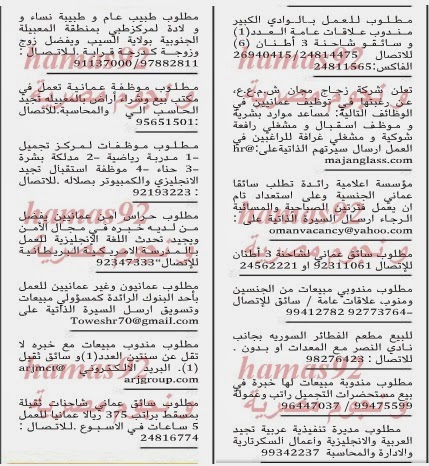 مطلوب للعمل بالوادي الكبير
مندوب علاقات عامة العدد(1)
و سائقو شاحنة 3 أطنان (6)
للاتصال 26940415/24814475
الفاكس:24811565
تعلن شركة زجاج مجان ش.م.ع.ع.
عن رغبتها في توظيف عمانيين في
الوظائف التالية: مساعد موارد بشرية
و موظف استقبال و مشغلي رافعة
شوكية و مشغلي غرافة للراغبين في
العمل ارسال سيرتهم الذاتيةعلى:hr@
majanglass.com
مؤسسة اعلامية رائدة تطلب سائقا
عماني الجنسية وعلى استعداد تام
ان يعمل فترتين الصباحية والمسائية
الرجاء ارسال السيرة الذاتية على :
omanvacancy@yahoo.com
مطلوب سائق عماني لشاحنة 3 أطنان
للاتصال 92311061 او 24562221
مطلوب مندوبي مبيعات من الجنسين
ومنوب علاقات عامة / سائق للإتصال
99412782 92773764-
للبيع مطعم الفطائر السوريه بجانب
نادي النصر مع المعدات او بدون .
للاتصال : 98276423
مطلوب مندوبة مبيعات لها خبرة في
بيع مستحضرات التجميل راتب وعمولة
96447037 / 99475599
مطلوب مديرة تنفيذية عربية تجيد
العربية والانجليزية واعمال السكرتارية
والادارة والمحاسبة 99342237
مطلوب طبيب عام و طبيبة نساء و
و لادة لمركزطبي بمنطقة المعبيلة
الجنوبية بولاية السيب ويفضل زوج
وزوجة كدرجة قرابة للاتصال :
91137000/97882811
مطلوب موظفة عمانية تعمل في
مكتب بيع وشراء أراض بالمعبيله تجيد
الحاسب الي والمحاسبة.للاتصال
95651501:
مطلوب موظفات لمركز تجميل
1- مدربة رياضية 2- مدلكة بشرة
3- حناء 4- موظفة استقبال تجيد
الانجليزي والكمبيوتر بصلاله .للاتصال
92193223 :
مطلوب حراس أمن عمانيين يفضل
من لديه خبره في مجال الأمن
ويجيد تحدث اللغة الأنجليزية للعمل
بالمدرسة الامريكية البريطانية
للإتصال"92347333
مطلوب عمانيون وغير عمانيين للعمل
بأحد البنوك الرائدة كمسؤولي مبيعات
وتسويق ارسل السيرة الذاتية على
Toweshr70@gmail.com
مطلوب مندوب مبيعات مع خبره لا
تقل عن سنتين العدد(1)و سائق ثقيل
(1). البريد الالكتروني arjmct@
arjgroup.com
مطلوب سائق عماني شاحنات ثقيلة
بمسقط براتب 375 ريالا عمانيا للعمل
5 ساعات في الأسبوع .للاتصال :
24816774
hamas92
و نجوم مصرية